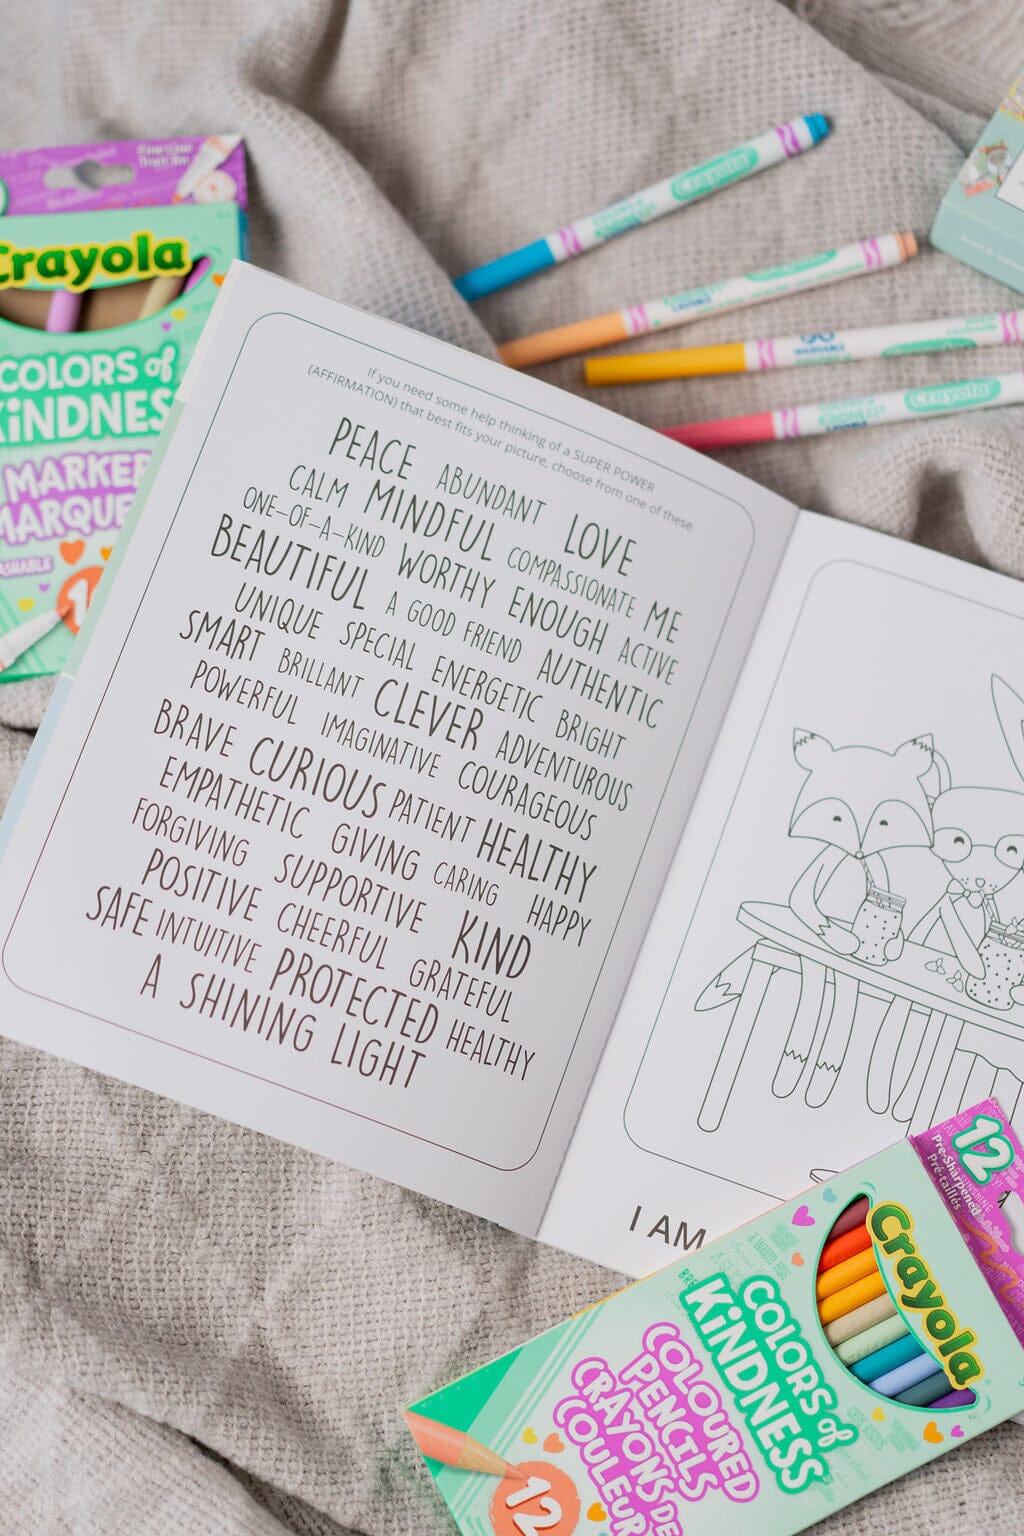 Crayola
COLORS of
KiNDNESS
MARKER
MARQUE
If you need some help thinking of a SUPER POWER
(AFFIRMATION) that best fits your picture, choose from one of these.
PEACE ABUNDANT LOVE
CALM MINDFUL COMPASSIONATE ME
ONE-OF-A-KIND WORTHY ENOUGH ACTIVE
BEAUTIFUL A GOOD FRIEND AUTHENTIC
UNIQUE SPECIAL ENERGETIC BRIGHT
SMART BRILLANT CLEVER ADVENTUROUS
POWERFUL IMAGINATIVE COURAGEOUS
BRAVE CURIOUS PATIENT HEALTHY
EMPATHETIC GIVING CARING HAPPY
FORGIVING SUPPORTIVE KIND
POSITIVE CHEERFUL GRATEFUL
SAFE INTUITIVE PROTECTED HEALTHY
A SHINING LIGHT
I AM
Crayola
Crayola
12
Pre-Sharpened
Pré-taillés
Crayola
COLORS of
KiNDNESS
COLOURED
PENCILS
CRAYONS DE
COULEUR
12